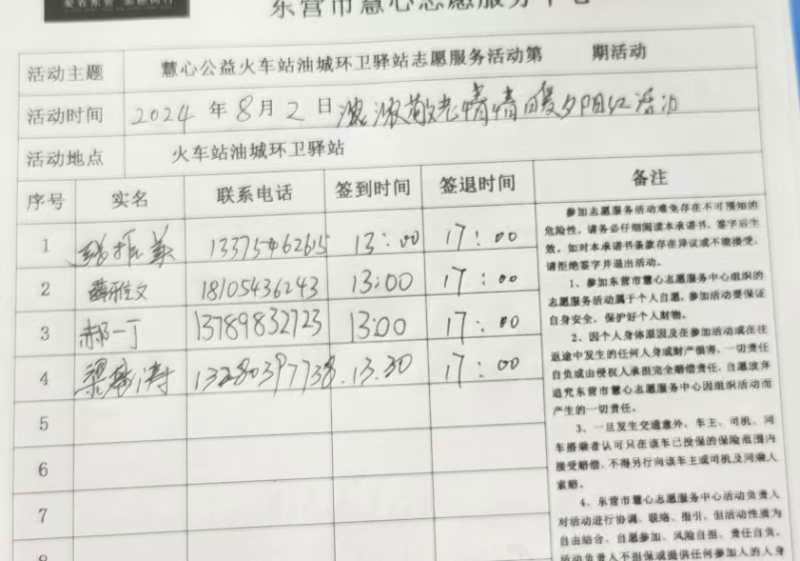 东营市慧心志愿服务中心
活动主题 慧心公益火车站油城环卫驿站志愿服务活动第 期活动
活动时间 2024 年 8 月 2 日 浓浓敬老情情暖夕阳红活动
活动地点 火车站油城环卫驿站
序号 实名 联系电话 签到时间 签退时间 备注
1 13375462615 13:00 17:00
2 薛雅文 18105436243 13:00 17:00
3 郝一丁 13789832723 13:00 17:00
4 13280397738 13.30 17:00
5
6
7
8
参加志愿服务活动难免存在不可预知的
危险性，请务必仔细阅读本承诺书，签字后生
效。如对本承诺书条款存在异议或不能接受，
请拒绝签字并退出活动。
1、参加东营市慧心志愿服务中心组织的
志愿服务活动属于个人自愿，参加活动要保证
自身安全，保护好个人财物。
2、因个人身体原因及在参加活动或在往
返途中发生的任何人身或财产损害，一切责任
自负或由侵权人承担完全赔偿责任，自愿放弃
追究东营市慧心志愿服务中心因组织活动而
产生的一切责任。
3、一旦发生交通意外，车主、司机、同
车搭乘者认可只在该车已投保的保险范围内
接受赔偿，不得另行向该车主或司机及同乘人
索赔。
4、东营市慧心志愿服务中心活动负责人
对活动进行协调、联络、指引，但活动性质为
自由结合、自愿参加、风险自担、责任自负。
活动负责人不担保或提供任何参加人的人身